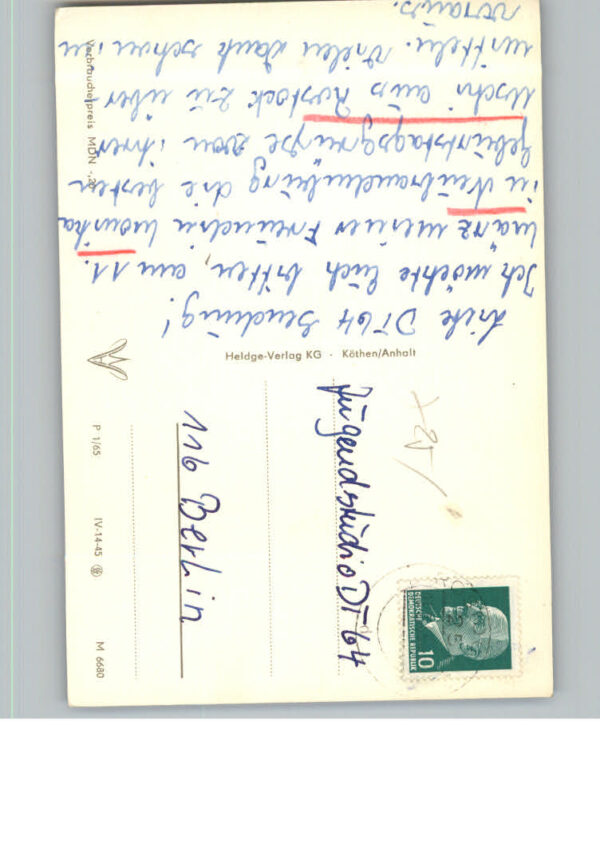 Liebe DT 64 Sendung!
Ich möchte Euch bitten, am 11.
März meiner Freundin Monika
in Neubrandenburg die besten
Geburtstagsgrüße von ihrer
Uschi aus Rostock zu über
mitteln. Vielen Dank schon im
voraus.
Jugendstudio DT 64
116 Berlin
Heldge-Verlag KG · Köthen/Anhalt
Verbraucherpreis MDN -,20
P 1/65 IV-14-45 M 6680
DEUTSCHE
DEMOKRATISCHE REPUBLIK
10